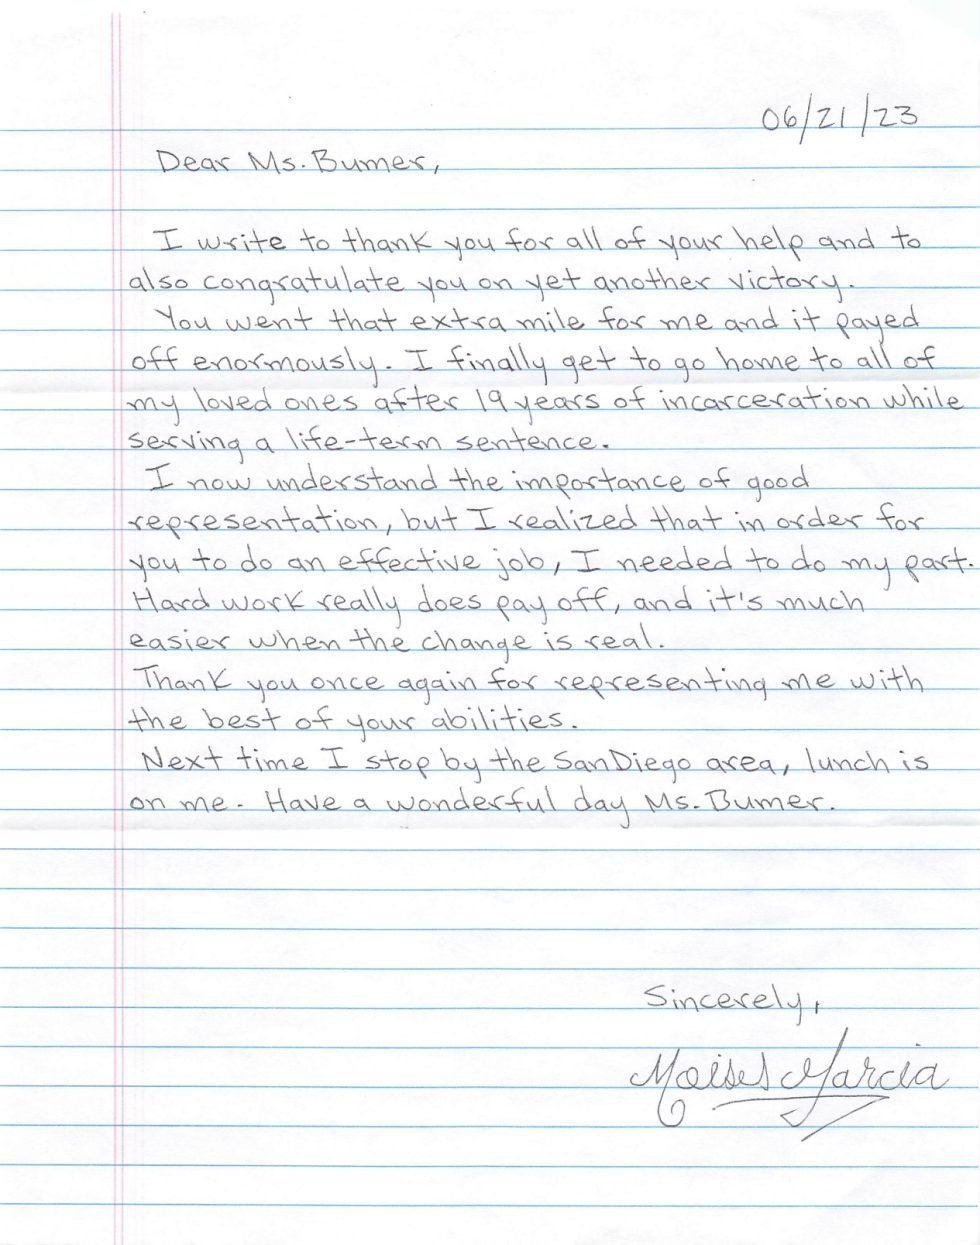 06/21/23
Dear Ms. Bumer,
I write to thank you for all of your help and to
also congratulate you on yet another victory.
You went that extra mile for me and it payed
off enormously. I finally get to go home to all of
my loved ones after 19 years of incarceration while
serving a life-term sentence.
I now understand the importance of good
representation, but I realized that in order for
you to do an effective job, I needed to do my part.
Hard work really does pay off, and it's much
easier when the change is real.
Thank you once again for representing me with
the best of your abilities.
Next time I stop by the San Diego area, lunch is
on me. Have a wonderful day Ms. Bumer.
Sincerely,
Moises